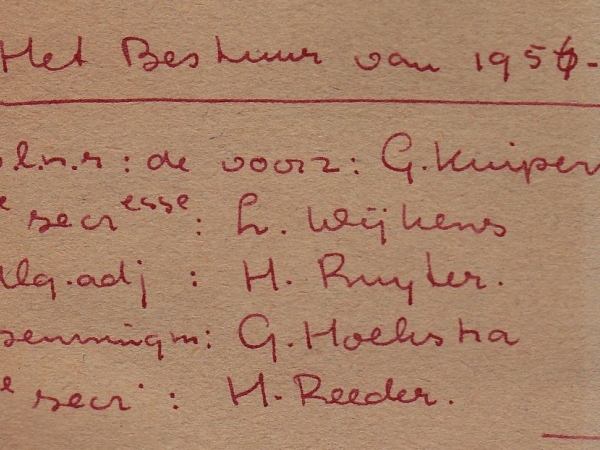 Het Bestuur van 1956-
.l.n.r: de voorz: G. Kuiper
secresse: L. Wijkens
alg.adj : H. Ruyter.
penningm: G. Hoekstra
e secr : H. Reeder.